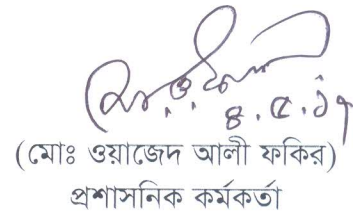 ৪.৫.১৭
(মোঃ ওয়াজেদ আলী ফকির)
প্রশাসনিক কর্মকর্তা